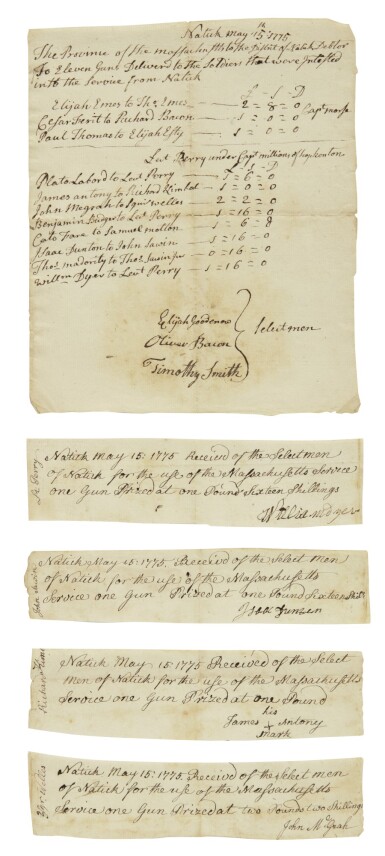 Natick May 15th 1775
The Province of the Massachusetts to the District of Natick Debtor
To Eleven Guns Deliverd to the Soldiers that were Inlisted
into the Service from Natick
£ - S - D
Elijah Emes to Thos. Emes 2 = 8 = 0
Cesar Ferit to Richard Bacon 1 = 0 = 0 Capt morse
Paul Thomas to Elijah Esty 1 = 0 = 0
Leut Perry under Capt millions of hopkenton
£ S D
Plato Labord to Leut Perry 1 = 6 = 0
James antony to Richard 1 = 0 = 0
John Megrah to Squir welles 2 = 2 = 0
Benjamin to Leut Perry 1 = 16 = 0
Cato Fare to Samuel morton 1 = 6 = 8
Isaac Junton to John Sawin 1 = 16 = 0
Thos. to Thos. Sawin 0 = 16 = 0
Willm Dyer to Leut Perry 1 = 16 = 0
Elijah Goodenow
Oliver Bacon
Timothy Smith
Select men
Lt Perry
Natick May 15: 1775 Received of the Select men
of Natick for the use of the Massachusetts Service
one Gun Prized at one Pound Sixteen Shillings
John Sawin
Natick May 15: 1775 Receivd of the Select men
of Natick for the use of the Massachusetts
Service one Gun Prized at one Pound Sixteen
Natick May 15 1775 Received of the Select
men of Natick for the use of the Massachusetts
Service one Gun Prized at one Pound
his
James + Antony
mark
Natick May 15: 1775 Received of the Select men
of Natick for the use of the Massachusetts
Service one Gun Prized at two Pounds two Shillings
John McGrah